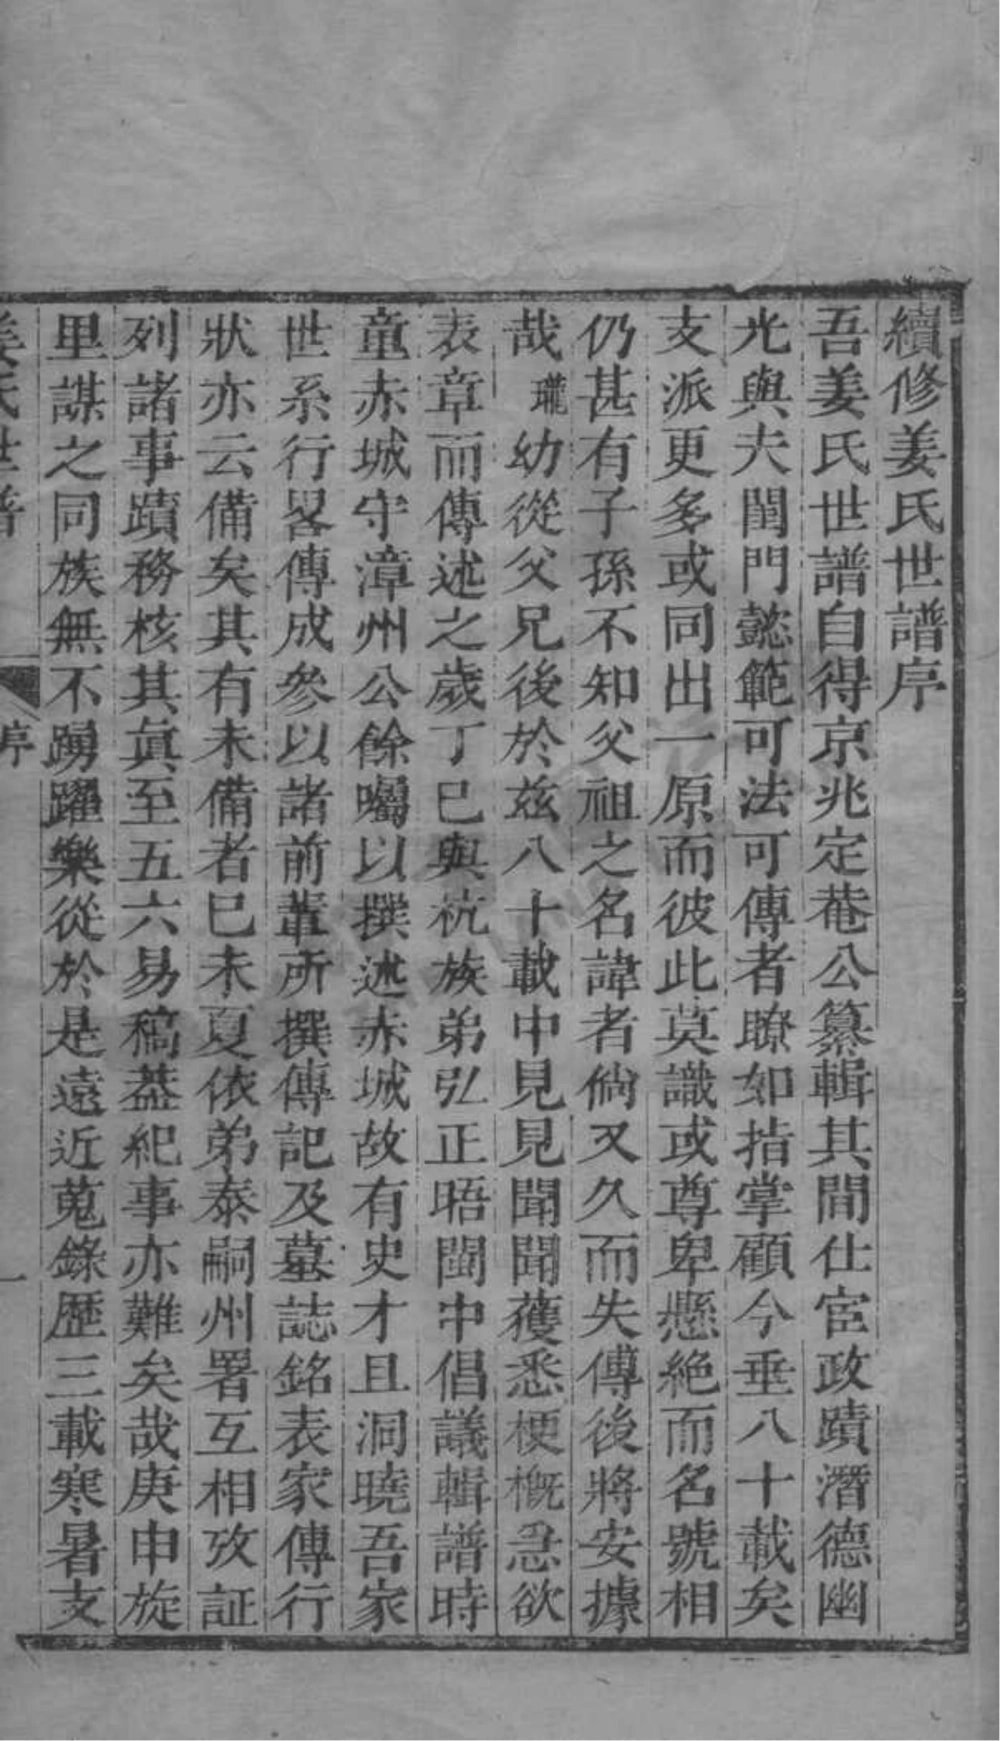 續修姜氏世譜序
吾姜氏世譜自得京兆定菴公纂輯其間仕宦政蹟潛德幽
光與夫閨門懿範可法可傳者瞭如指掌顧今垂八十載矣
支派更多或同出一原而彼此莫識或尊卑懸絶而名號相
仍甚有子孫不知父祖之名諱者倘又久而失傳後將安據
哉瓏幼從父兄後於兹八十載中見見聞聞獲悉梗概急欲
表章而傳述之歲丁巳與杭族弟弘正晤閩中倡議輯譜時
童赤城守漳州公餘囑以撰述赤城故有史才且洞曉吾家
世系行畧傳成參以諸前軰所撰傳記及墓誌銘表家傳行
狀亦云備矣其有未備者巳未夏依弟泰嗣州署互相攷証
列諸事蹟務核其眞至五六易稿葢紀事亦難矣哉庚申旋
里謀之同族無不踴躍樂從於是遠近蒐錄歷三載寒暑支
姜氏世譜
序
一